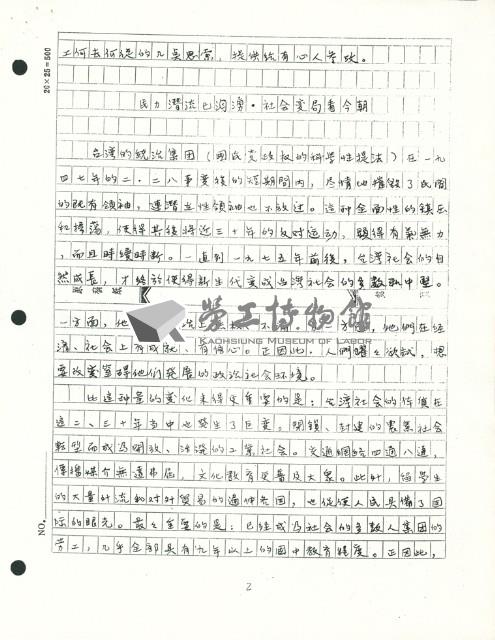 20×25=500
工何去何從的几點思索，提供給有心人參攷。
民力潛流已洶湧·社會变局看今朝
台灣的統治集团（国民党政权的科學性提法）在一九
四七年的二·二八事变後的短期間內，尽情地摧毀了民間
的既有領袖，連潛在性領袖也不放过。這种全面性的鎮压
和掃蕩，使得其後將近三十年的反对运动，顯得有氣無力
，而且時續時斷。一直到一九七五年前後，台灣社會的自
然成長，才終於使得新生代变成台灣社會的多数和中堅。
一方面，他 政治上 不 方 ，他們在經
濟、社會上有成就、有信心。正因此，人們躍躍欲試，想
要改变窒碍他們發展的政治社會环境。
比這种量的变化來得更重要的是：台灣社會的体質在
這二、三十年当中也發生了巨变。閉鎖、封建的農業社會
轉型而成为開放、活潑的工業社會。交通網路四通八達，
傳播媒介無遠弗屆，文化教育更普及大眾。此外，留學生
的大量外流和对外貿易的遍伸各国，也促使人民具備了国
际的眼光。最最重要的是：已經成为社會的多数人集团的
劳工，几乎全部具有九年以上的国中教育程度。正因此，
NO.
2
勞工博物館
KAOHSIUNG MUSEUM OF LABOR